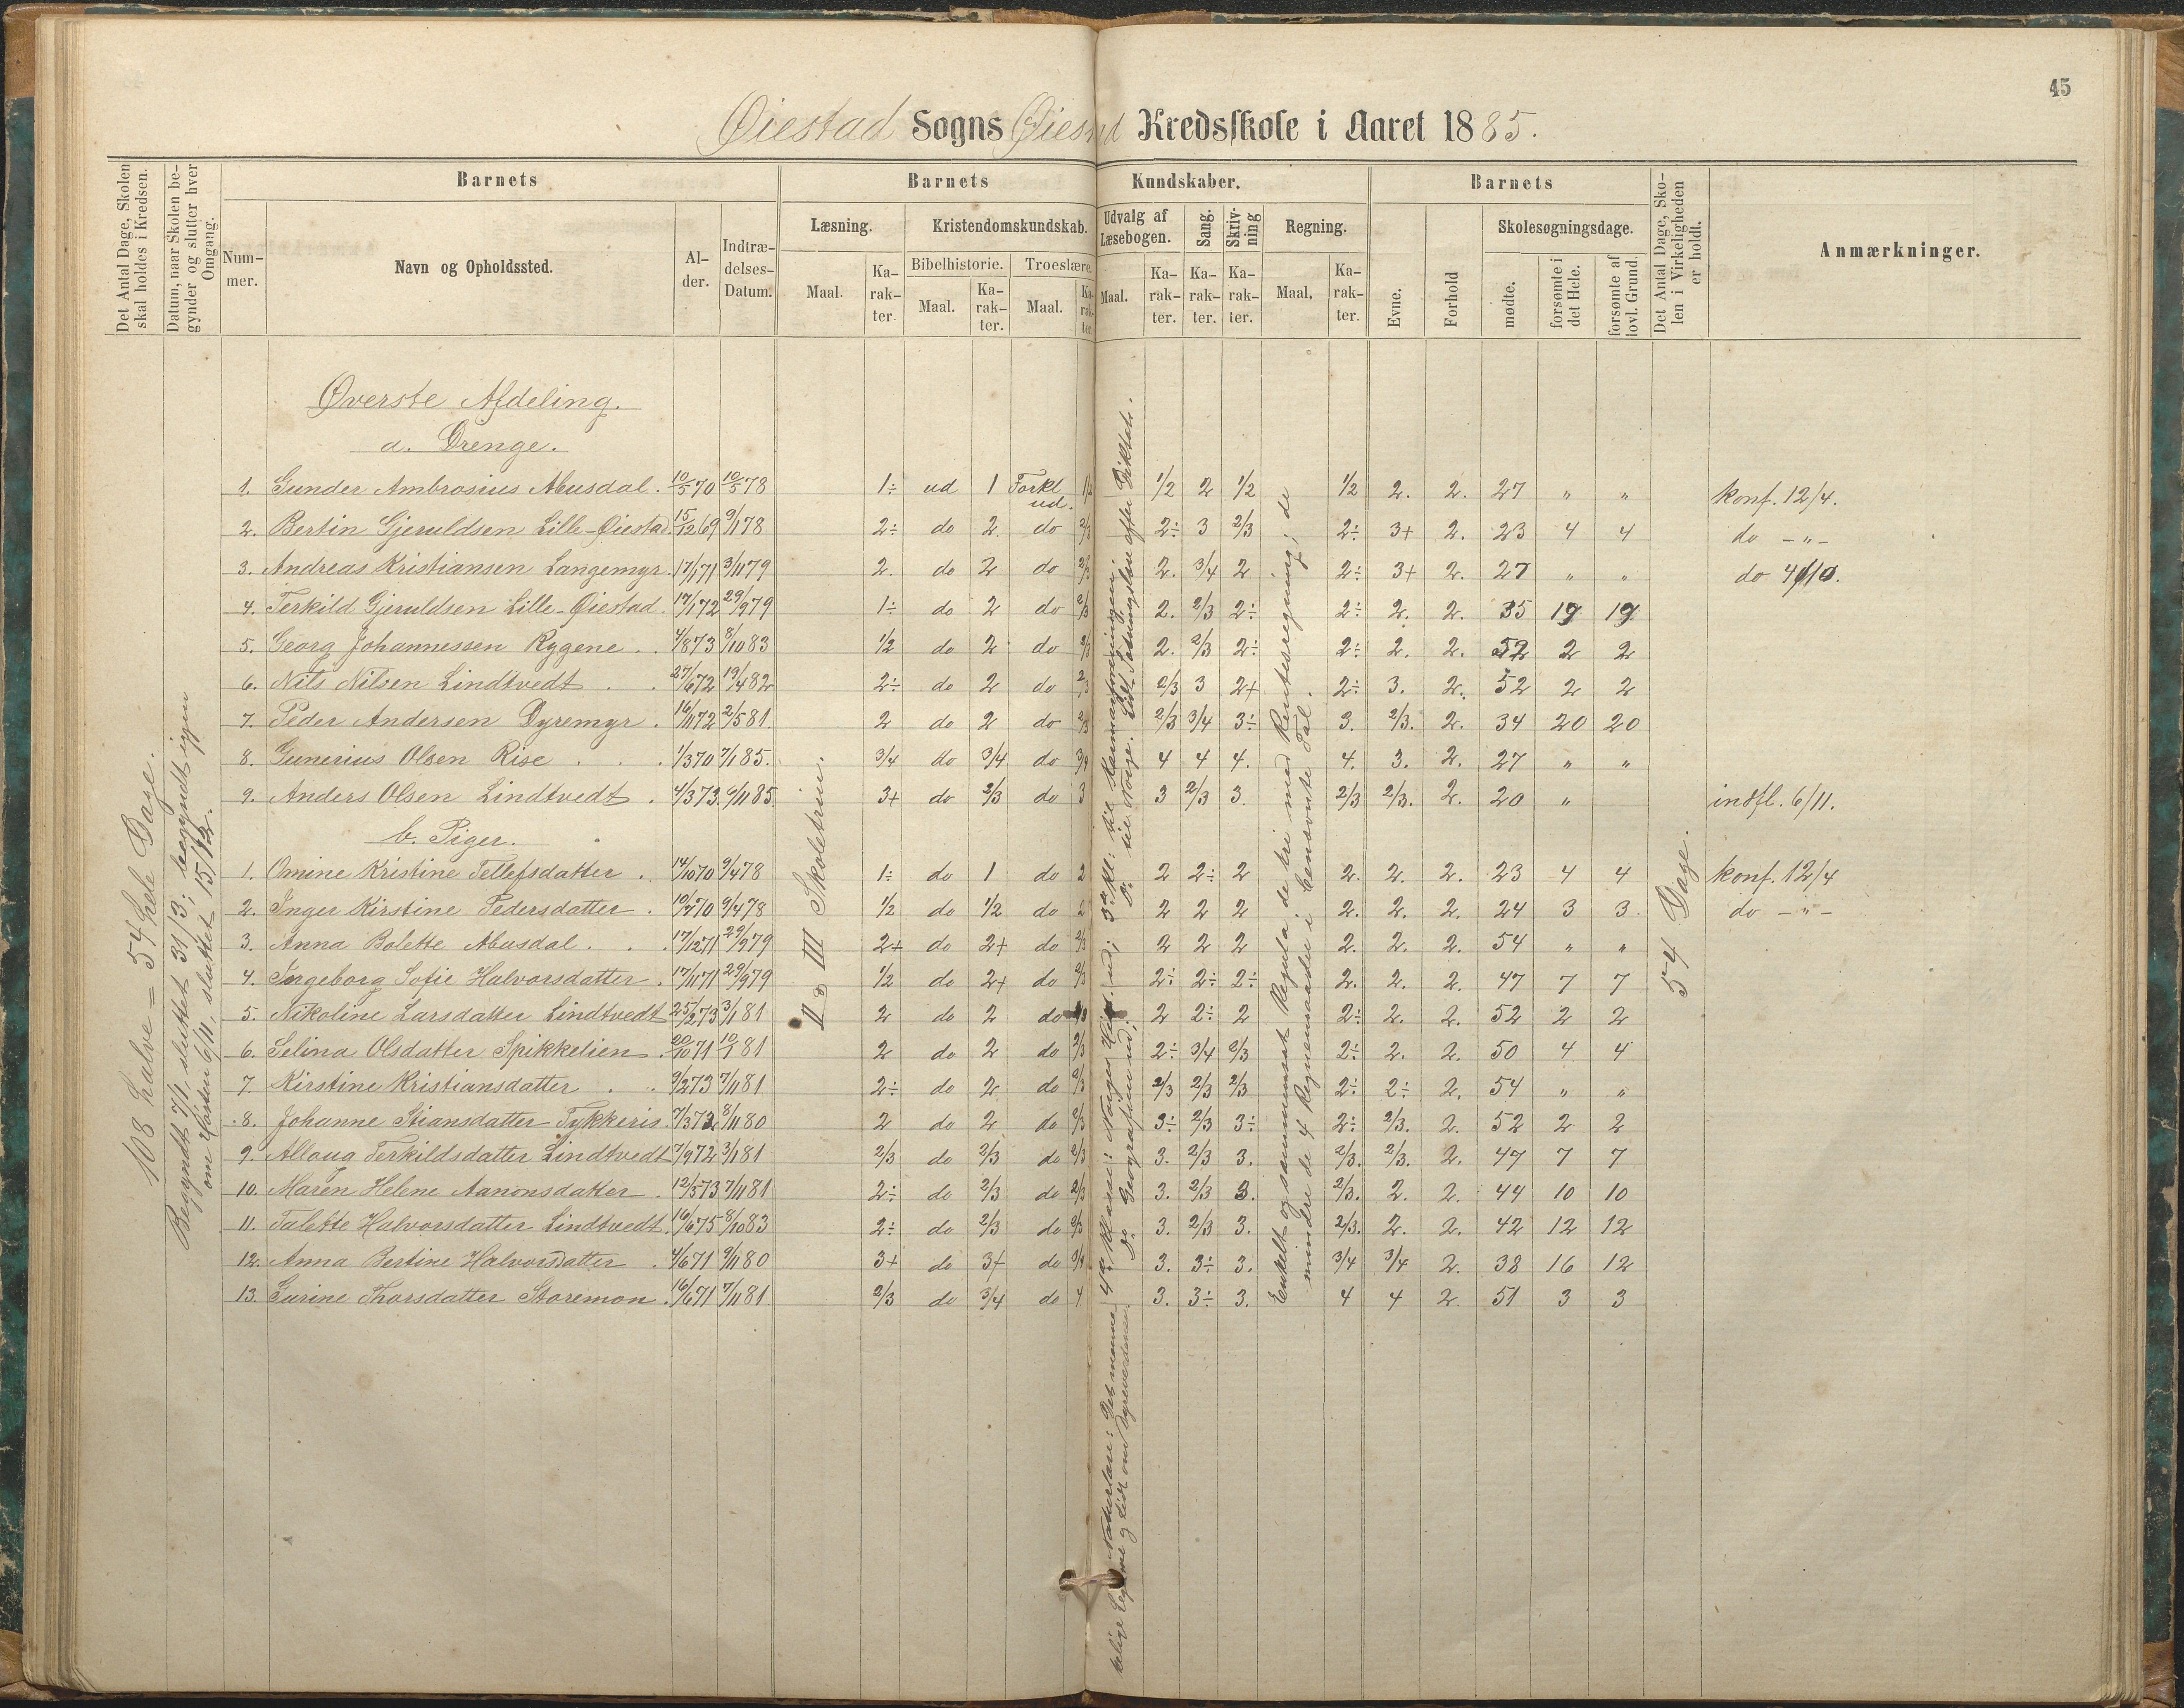 45
Øiestad Sogns Øiestad Kredsskole i Aaret 1885.
Det Antal Dage, Skolen skal holdes i Kredsen.
Datum, naar Skolen begynder og slutter hver Omgang.
Barnets
Barnets Kundskaber.
Barnets
Det Antal Dage, Skolen i Virkeligheden er holdt.
Anmærkninger.
Nummer. Navn og Opholdssted. Alder. Indtrædelses-Datum.
Læsning. Kristendomskundskab. Udvalg af Læsebogen. Sang. Skrivning Regning.
Bibelhistorie. Troeslære.
Maal. Karakter. Maal. Karakter. Maal. Karakter. Maal. Karakter. Karakter. Karakter. Maal. Karakter.
Evne. Forhold Skolesøgningsdage. mødte. forsømte i det Hele. forsømte af lovl. Grund.
108 halve = 54 hele Dage.
Begyndt 7/1, sluttet 31/3; begyndt igjen
om Høsten 6/11, sluttet 15/12.
Øverste Afdeling.
a. Drenge.
1. Gunder Ambrosius Abusdal. 10/5 70 10/5 78 1÷ ud 1 Forkl ud. 1/2 1/2 2 1/2 1/2 2. 2. 27 " " konf. 12/4.
2. Bertin Gjeruldsen Lille-Øiestad. 15/12 69 9/1 78 2÷ do 2. do 2/3 2÷ 3 2/3 2÷ 3+ 2. 23 4 4 do -"-
3. Andreas Kristiansen Langemyr. 17/1 71 3/11 79 2. do 2 do 2/3 2. 3/4 2 2÷ 3+ 2. 27 " " do 4/10.
4. Terkild Gjeruldsen Lille-Øiestad. 17/1 72 29/9 79 1÷ do 2 do 2/3 2. 2/3 2÷ 2÷ 2. 2. 35 19 19
5. Georg Johannessen Rygene . . 4/8 73 8/10 83 1/2 do 2 do 2/3 2. 2/3 2÷ 2÷ 2. 2. 52 2 2
6. Nils Nilsen Lindtvedt . . 27/6 72 19/4 82 2÷ do 2 do 2/3 2/3 3 2+ 2÷ 3. 2. 52 2 2
7. Peder Andersen Dyremyr . 16/11 72 2/5 81. 2 do 2 do 2/3 2/3 3/4 3÷ 3. 2/3. 2. 34 20 20
8. Gunerius Olsen Rise . . . 1/3 70 7/1 85. 3/4 do 3/4 do 3/4 4 4 4. 4. 3. 2. 27 " "
9. Anders Olsen Lindtvedt . 4/3 73. 6/11 85. 3+ do 2/3 do 3 3 2/3 3. 2/3 2/3. 2. 20 " indfl. 6/11.
b. Piger.
1. Omine Kristine Tellefsdatter . 14/10 70 9/4 78 1÷ do 1 do 2 2 2÷ 2 2. 2. 2. 23 4 4 konf. 12/4
2. Inger Kirstine Pedersdatter . 10/4 70 9/4 78 1/2 do 1/2 do 2 2 2 2 2. 2. 2. 24 3 3. do -"-
3. Anna Bolette Abusdal . . . 17/12 71 29/9 79 2+ do 2+ do 2/3 2 2 2 2. 2. 2. 54 " "
4. Ingeborg Sofie Halvorsdatter . 17/11 71 29/9 79 1/2 do 2+ do 2/3 2÷ 2÷ 2÷ 2. 2. 2. 47 7 7
5. Nikoline Larsdatter Lindtvedt 25/2 73 3/1 81 2 do 2 do 2 2÷ 2 2÷ 2. 2. 52 2 2
6. Selina Olsdatter Spikkelien . 20/10 71 10/1 81 2 do 2 do 2/3 2÷ 3/4 2/3 2÷ 2. 2. 50 4 4
7. Kirstine Kristiansdatter . . 9/2 73 7/11 81 2÷ do 2 do 2/3 2/3 2/3 2/3 2÷ 2÷ 2. 54 " "
8. Johanne Stiansdatter Tykkeris. 7/3 72 8/11 80 2 do 2 do 2/3 3÷ 2/3 3÷ 2÷ 2/3. 2. 52 2 2
9. Alloug Terkildsdatter Lindtvedt 7/9 72 3/1 81 2/3 do 2/3 do 2/3 3. 2/3 3. 2/3. 2/3. 2. 47 7 7
10. Maren Helene Aanonsdatter . 12/5 73 7/11 81 2÷ do 2/3 do 2/3 3. 2/3 3. 2/3. 2. 2. 44 10 10
11. Talette Halvorsdatter Lindtvedt. 16/6 75 8/10 83 2÷ do 2/3 do 2/3 3. 2/3 3. 2/3. 2. 2. 42 12 12
12. Anna Bertine Halvorsdatter . 4/6 71 9/11 80 3+ do 3+ do 3/4 3. 3÷ 3. 3/4 3/4 2. 38 16 12
13. Gurine Thorsdatter Storemon . 16/6 71 7/11 81 2/3 do 3/4 do 4 3. 3÷ 3. 4 4 2. 51 3 3
II & III Skoletrin.
4de Klasse: Norges Hist. ud;
do Geografien ud;
3die Kl: til
do til Norge. Lidt efter Diktat.
Naturlære: Det menneskelige Legeme
og Lidt om Dyreverdenen.
Enkelt og sammensat Regula de tri med Rentesregning; de
mindre de 4 Regningsarter i benævnte Tal.
54 Dage.